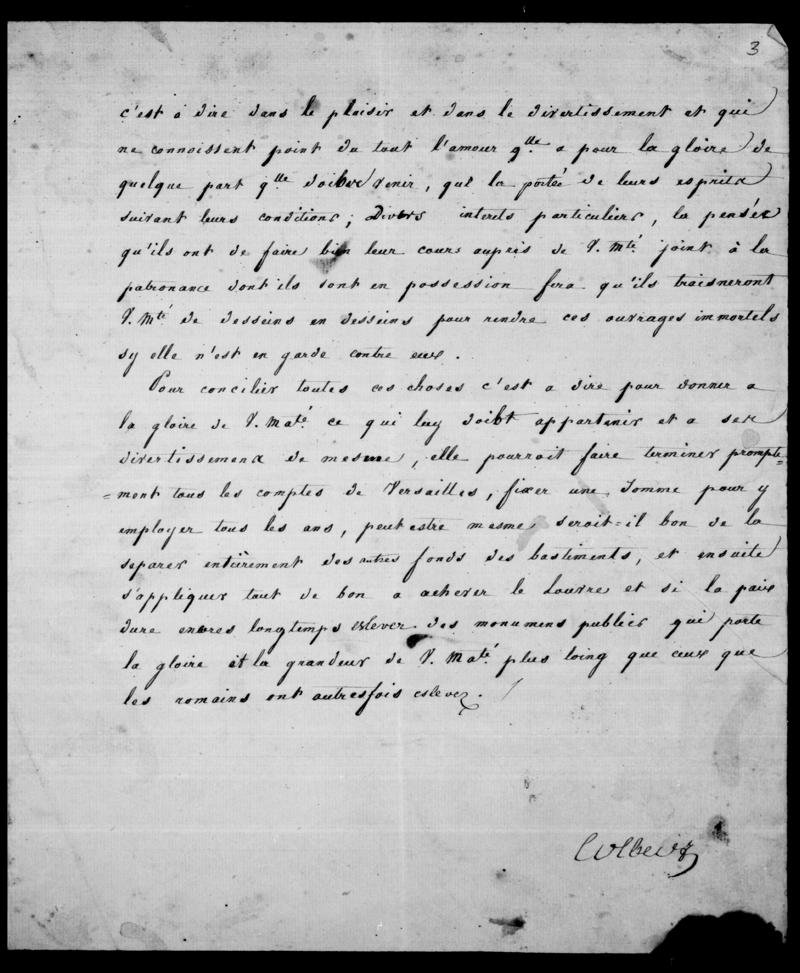 3
c'est à dire dans le plaisir et dans le divertissement et qui
ne connoissent point du tout l'amour qlle a pour la gloire de
quelque part qlle doibve venir, que la portée de leurs esprits
suivant leurs conditions; Divers interets particuliers, la pensée
qu'ils ont de faire bien leur cours aupris de V. Mté joint à la
patronance dont ils sont en possession fera qu'ils traisneront
V. Mté de desseins en desseins pour rendre ces ouvrages immortels
sy elle n'est en garde contre eux.
Pour concilier toutes ces choses c'est a dire pour donner a
la gloire de V. Maté ce qui luy doibt appartenir et a ses
divertissemens de mesme, elle pourroit faire terminer prompte=
=ment tous les comptes de Versailles, fixer une Somme pour y
employer tous les ans, peut estre mesme seroit=il bon de la
separer entiërement des autres fonds des bastiments, et ensuite
s'appliquer tout de bon a achever le Louvre et si la paix
dure encores longtemps eslever des monumens publics qui porte
la gloire et la grandeur de V. Maté plus loing que ceux que
les romains ont autresfois eslevez.
Colbert